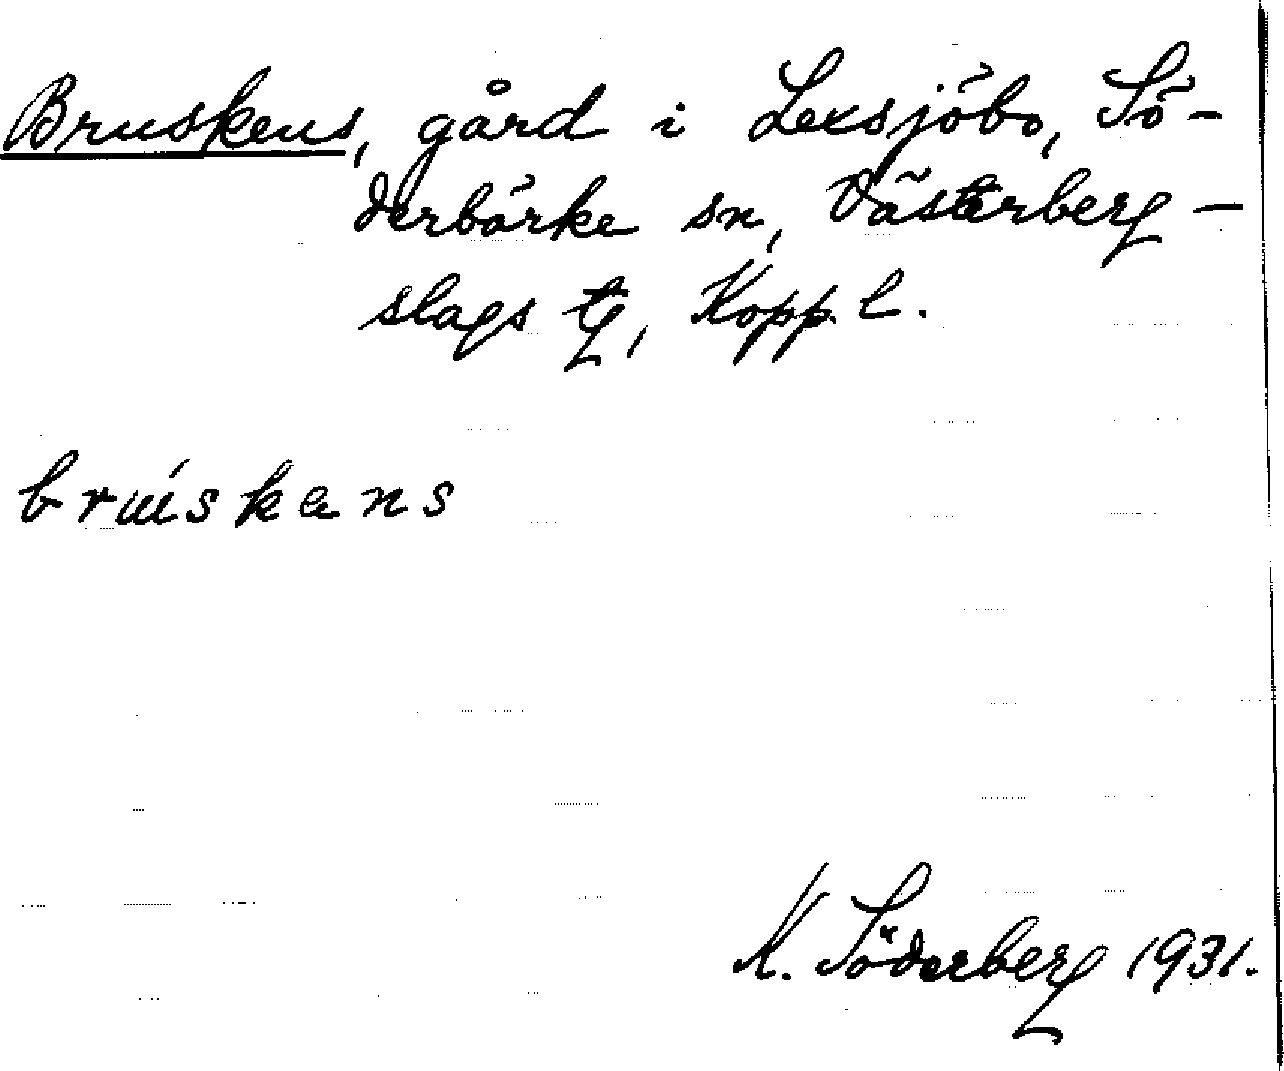 Bruskens, gård i Lexsjöbo, Sö-
derbärke sn, Västerberg-
slags tg, Kopp. l.
K. Söderberg 1931.